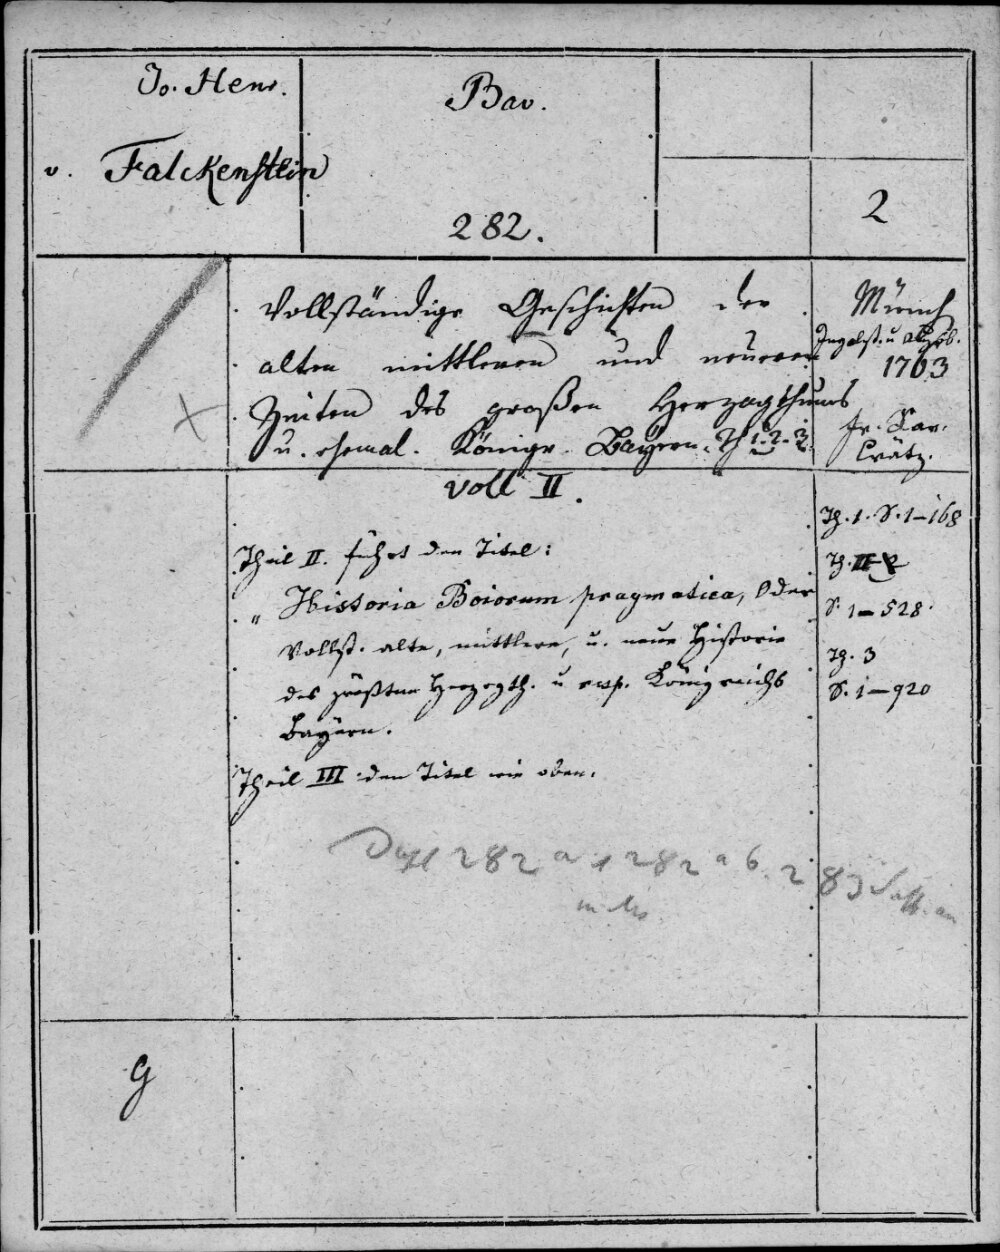 Jo. Henr.
v. Falckenstein
Bav.
282.
2
Vollständige Geschichten der
alten mittleren und neueren
Zeiten des großen Herzogthums
u. ehemal. Königr. Bayern. Th 1. 2. 3.
Münch
Ingolst. u Augsb.
1763
fr. Xav.
Crätz.
voll II.
Theil II. führt den Titel:
„ Historia Boiorum pragmatica, Oder
Vollst. alte, mittlere, u. neue Historie
des größten Herzogth. u resp. Königreichs
Bayern.
Theil III den Titel wie oben.
Th. 1. S. 1–168
Th. II
S. 1–528.
Th. 3
S. 1–920
282 a 282 a b. 283
G